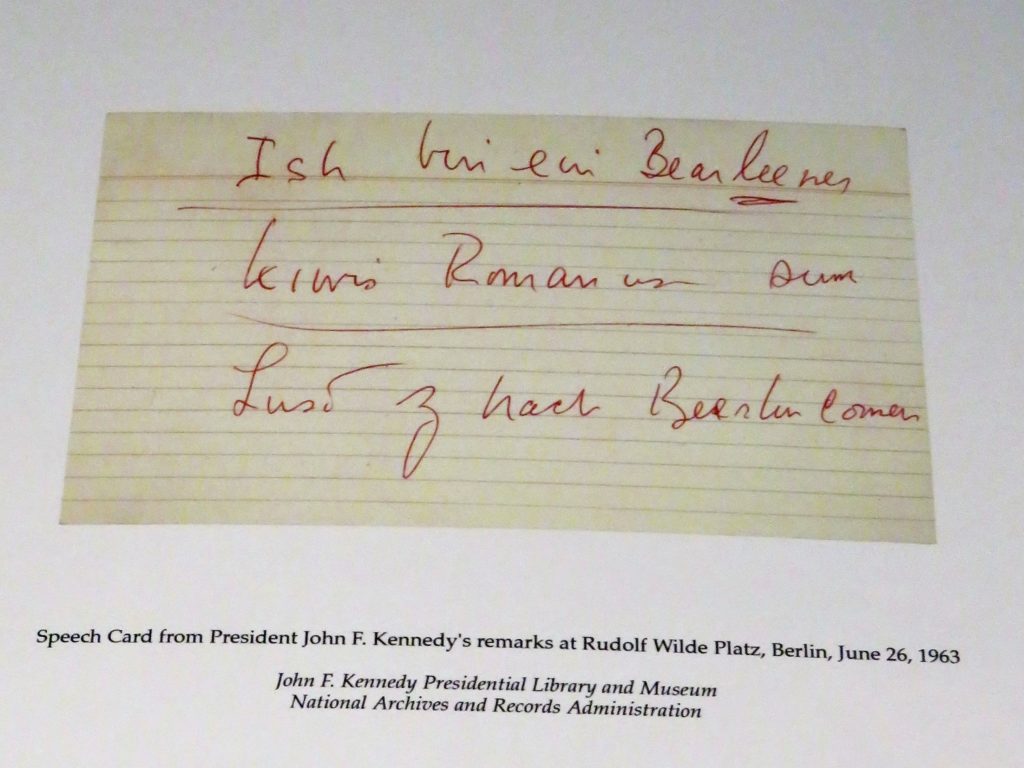 Ish bin ein Bearleener
kiwis Romanus sum
Lasd z nach Bearlin comen
Speech Card from President John F. Kennedy's remarks at Rudolf Wilde Platz, Berlin, June 26, 1963
John F. Kennedy Presidential Library and Museum
National Archives and Records Administration